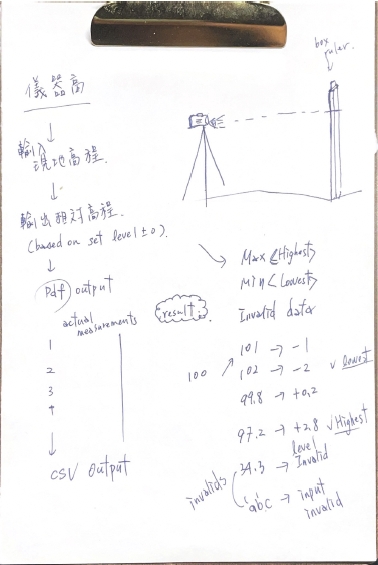 box
ruler.
儀器高
↓
輸入
現地高程.
↓
輸出相對高程.
(based on set level ±0).
↓
Pdf output
actual
measurements
1
2
3
4
↓
CSV output
result.
Max <Highest>
Min <Lowest>
Invalid data
100
101 → -1
102 → -2 ✓ lowest
99.8 → +0.2
97.2 → +2.8 ✓ Highest
34.3 → level Invalid
invalids
'abc' → input
invalid